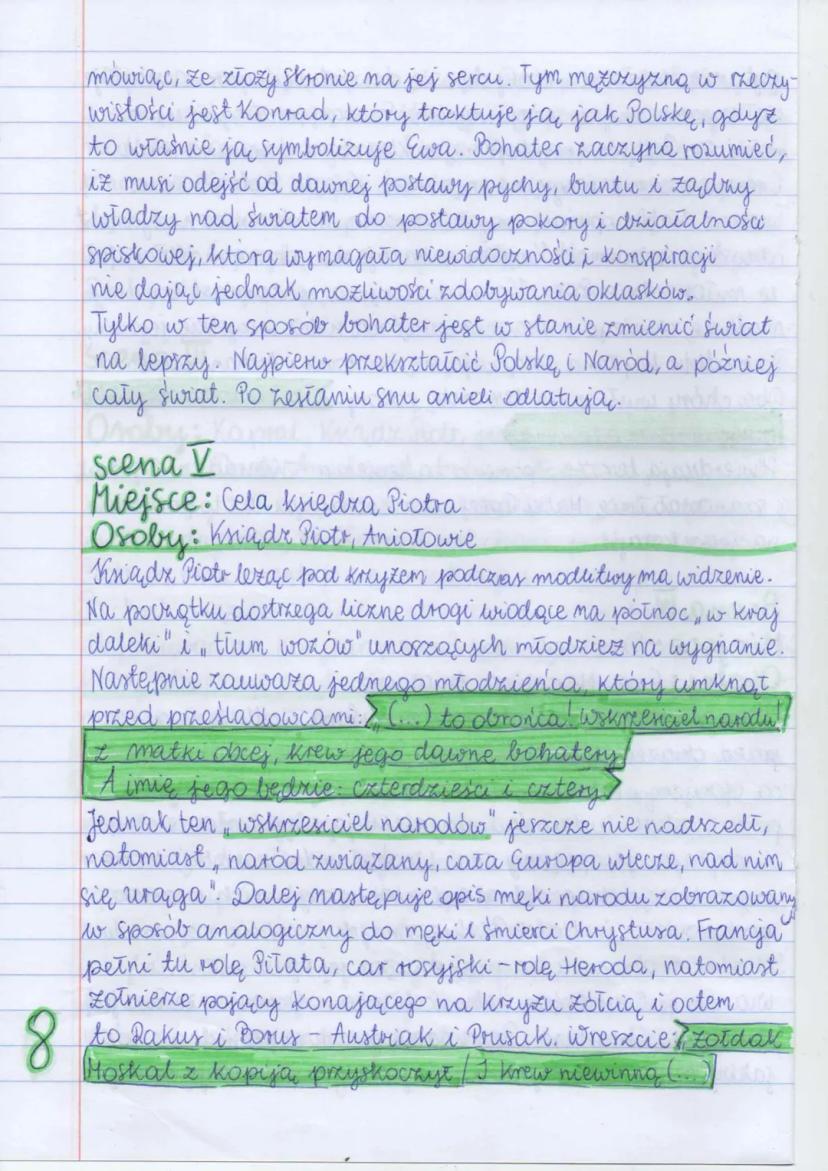 mówiąc, że złoży skronie na jej sercu. Tym mężczyzną w rzeczy-
wistości jest Konrad, który traktuje ją jak Polskę, gdyż
to właśnie ją symbolizuje Ewa. Bohater zaczyna rozumieć,
iż musi odejść od dawnej postawy pychy, buntu i żądzy
władzy nad światem do postawy pokory i działalności
spiskowej, która wymagała niewidoczności i konspiracji
nie dając jednak możliwości zdobywania oklasków.
Tylko w ten sposób bohater jest w stanie zmienić świat
na lepszy. Najpierw przekształcić Polskę i Naród, a później
cały świat. Po zesłaniu snu anieli odlatują.
scena V
Miejsce: Cela księdza Piotra
Osoby: Ksiądz Piotr, Aniołowie
Ksiądz Piotr leżąc pod krzyżem podczas modlitwy ma widzenie.
Na początku dostrzega liczne drogi wiodące na północ „w kraj
daleki" i „tłum wozów" unoszących młodzież na wygnanie.
Następnie zauważa jednego młodzieńca, który umknął
przed prześladowcami: „(...) to obrońca! Wskrzesiciel narodu!
z matki obcej, krew jego dawne bohatery
A imię jego będzie: czterdzieści i cztery."
Jednak ten „wskrzesiciel narodów" jeszcze nie nadszedł,
natomiast „naród związany, cała Europa wlecze, nad nim
się urąga". Dalej następuje opis męki narodu zobrazowany
w sposób analogiczny do męki i śmierci Chrystusa. Francja
pełni tu rolę Piłata, car rosyjski - rolę Heroda, natomiast
żołnierze pojący konającego na krzyżu żółcią i octem
to Rakus i Borus - Austriak i Prusak. Wreszcie: „żołdak
Moskal z kopiją przyskoczył / I krew niewinną (...)
8